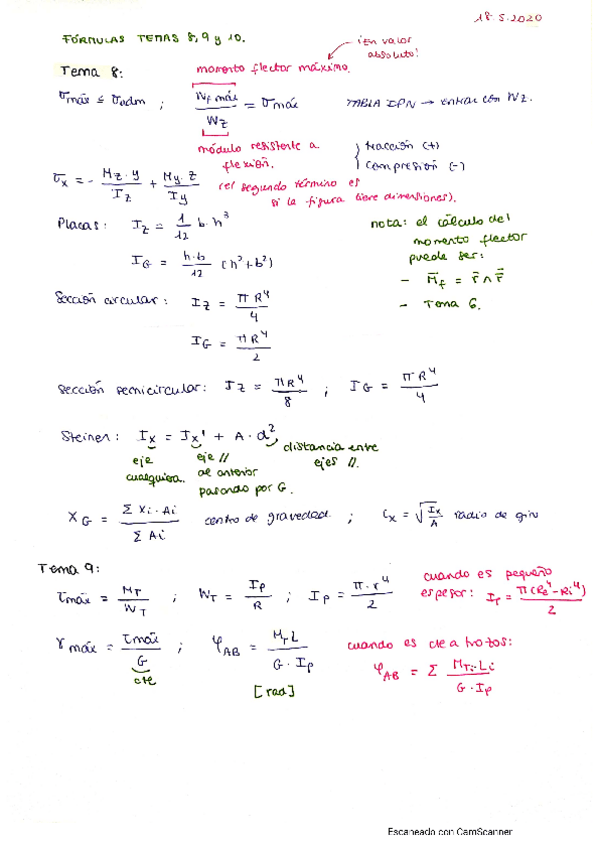 18.5.2020
FÓRMULAS TEMAS 8, 9 y 10.
¡En valor absoluto!
Tema 8:
momento flector máximo.
σmáx ≤ σadm ; Mf máx / Wz = σmáx TABLA IPN → entrar con Wz.
módulo resistente a flexión.
tracción (+)
compresión (-)
σx = - Mz · y / Iz + My · z / Iy (el segundo término es si la figura tiene dimensiones).
Placas: Iz = 1/12 b · h³
IG = h·b/12 (h² + b²)
nota: el cálculo del
momento flector
puede ser:
- Mf = r ∧ F
- Tema 6.
Sección circular: Iz = πR⁴/4
IG = πR⁴/2
Sección semicircular: Iz = πR⁴/8 ; IG = π·R⁴/4
Steiner: Ix = Ix' + A · d²
eje cualquiera.
eje // al anterior pasando por G.
distancia entre ejes //.
XG = Σ Xi · Ai / Σ Ai centro de gravedad ; ix = √(Ix/A) radio de giro
Tema 9:
τmáx = MT / WT ; WT = Ip / R ; Ip = π · r⁴ / 2
cuando es pequeño
espesor: Ip = π(Re⁴ - Ri⁴) / 2
γmáx = τmáx / G ; φAB = MT L / G · Ip
cte
[rad]
cuando es cte a trozos:
φAB = Σ MTi · Li / G · Ip
Escaneado con CamScanner